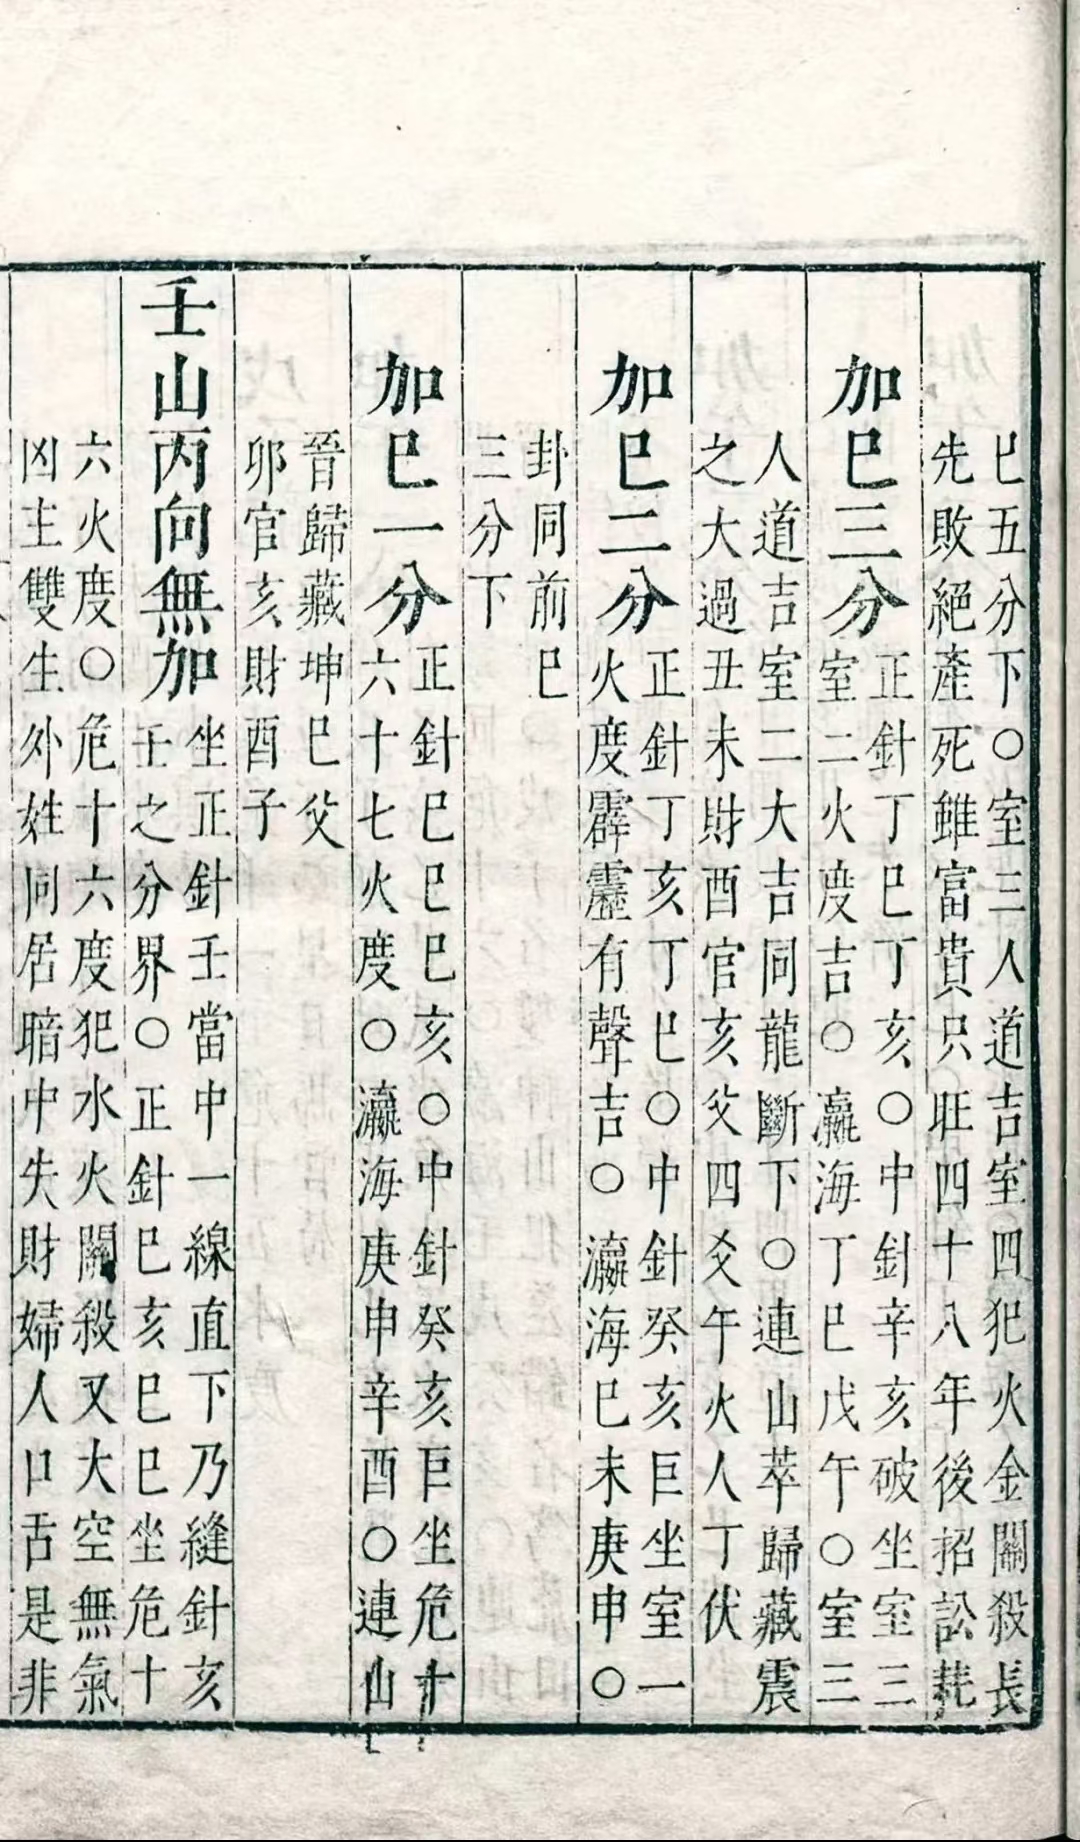 巳五分下○室三人道吉室四犯火金關殺長
先敗絕產死雖富貴只旺四十八年後招訟耗
加巳三分
正針丁巳丁亥○中針辛亥破坐室三
室二火度吉○瀛海丁巳戊午○室三
人道吉室二大吉同龍斷下○連山萃歸藏震
之大過丑未財酉官亥父四爻午火人丁伏
加巳二分
正針丁亥丁巳○中針癸亥巨坐室一
火度霹靂有聲吉○瀛海巳未庚申○
卦同前巳
三分下
加巳一分
正針巳巳巳亥○中針癸亥巨坐危十
六十七火度○瀛海庚申辛酉○連山
晉歸藏坤巳父
卯官亥財酉子
壬山丙向無加
坐正針壬當中一線直下乃縫針亥
壬之分界○正針巳亥巳巳坐危十
六火度○危十六度犯水火關殺又大空無氣
凶主雙生外姓同居暗中失財婦人口舌是非